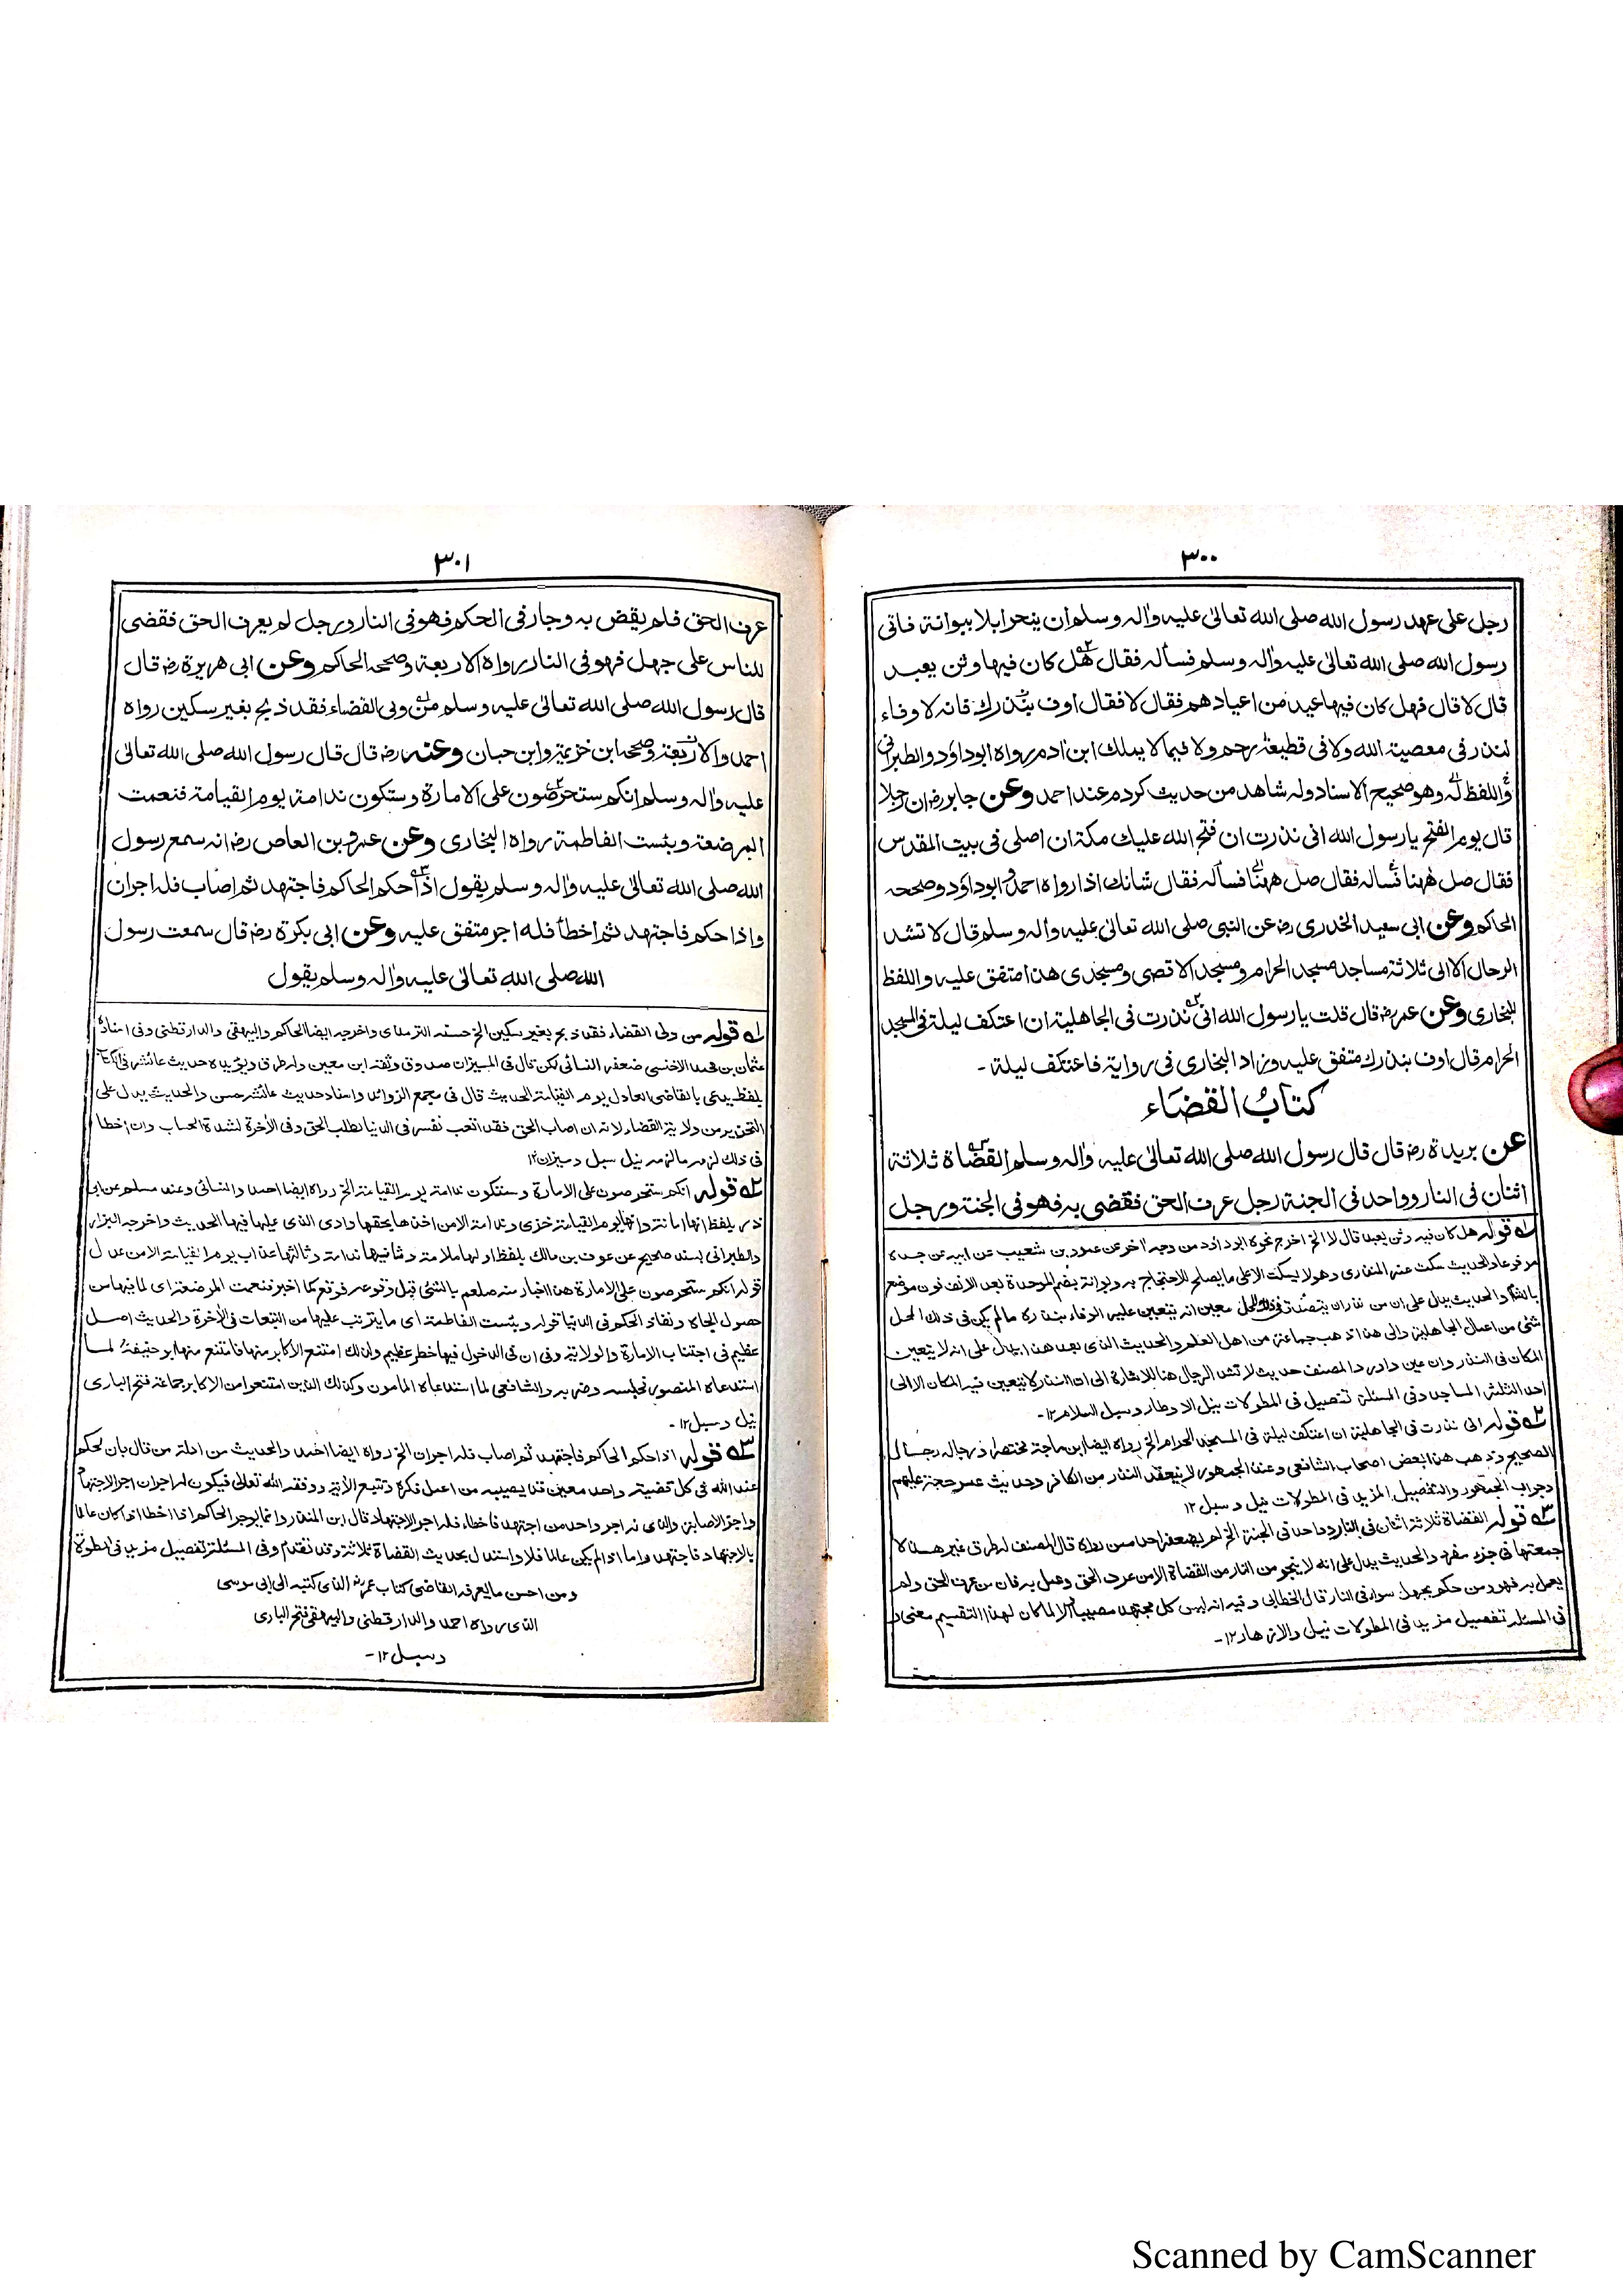 ٣٠٠
رجل على عهد رسول الله صلى الله تعالى عليه واٰله وسلم ان ينحر ابلا ببوانة فاتى
رسول الله صلى الله تعالى عليه واٰله وسلم فسأله فقال هل كان فيها وثن يعبد
قال لا قال فهل كان فيها عيد من اعيادهم فقال لا فقال اوف بنذرك فانه لا وفاء
لنذر فى معصية الله ولا فى قطيعة رحم ولا فيما لا يملك ابن اٰدم رواه ابوداؤد والطبرانى
واللفظ له وهو صحيح الاسناد وله شاهد من حديث كردم عند احمد وعن جابر رض ان رجلا
قال يوم الفتح يا رسول الله انى نذرت ان فتح الله عليك مكة ان اصلى فى بيت المقدس
فقال صل ههنا فسأله فقال صل ههنا فسأله فقال شانك اذا رواه احمد وابوداؤد وصححه
الحاكم وعن ابى سعيد الخدرى رض عن النبى صلى الله تعالى عليه واٰله وسلم قال لا تشد
الرحال الا الى ثلاثة مساجد مسجد الحرام ومسجد الاقصى ومسجدى هذا متفق عليه واللفظ
للبخارى وعن عمر رض قال قلت يا رسول الله انى نذرت فى الجاهلية ان اعتكف ليلة فى المسجد
الحرام قال اوف بنذرك متفق عليه وزاد البخارى فى رواية فاعتكف ليلة -
كتابُ القضَاء
عن بريدة رض قال قال رسول الله صلى الله تعالى عليه واٰله وسلم القضاة ثلاثة
اثنان فى النار وواحد فى الجنة رجل عرف الحق فقضى به فهو فى الجنة ورجل
١ه قوله هل كان فيه وثن يعبد قال لا الخ اخرج نحوه ابوداؤد من وجه اٰخر عن عمرو بن شعيب عن ابيه عن جده
مرفوعا والحديث سكت عنه المنذرى وهو لا يسكت الا على ما يصلح للاحتجاج به وبوانة بضم الموحدة بعد الالف نون موضع
بالشام والحديث يدل على ان من نذر ان يتصدق فى ذلك المحل معين انه يتعين عليه الوفاء بنذره ما لم يكن فى ذلك المحل
شئ من اعمال الجاهلية والى هذا ذهب جماعة من اهل العلم والحديث الذى بعد هذا يدل على انه لا يتعين
المكان فى النذر وان عين واورد المصنف حديث لا تشد الرحال هنا للاشارة الى ان النذر لا يتعين فيه المكان الا الى
احد الثلث المساجد وفى المسئلة تفصيل فى المطولات نيل الاوطار وسبل السلام ١٢-
٢ه قوله انى نذرت فى الجاهلية ان اعتكف ليلة فى المسجد الحرام الخ رواه ايضا ابن ماجة مختصرا ورجاله رجال
الصحيح وذهب هذا لبعض اصحاب الشافعى وعند الجمهور لا ينعقد النذر من الكافر وحديث عمر حجة عليهم
وجواب الجمهور والتفصيل المزيد فى المطولات نيل وسبل ١٢
٣ه قوله القضاة ثلاثة اثنان فى النار وواحد فى الجنة الخ قال المصنف له طرق غير هذا
جمعتها فى جزء مفرد والحديث يدل على انه لا ينجو من النار من القضاة الا من عرف الحق وعمل به فان من عرف الحق ولم
يعمل به فهو ومن حكم بجهل سواء فى النار قال الخطابى وفيه انه ليس كل مجتهد مصيبا والا لما كان لهذا التقسيم معنى و
فى المسئلة تفصيل مزيد فى المطولات نيل والازهار ١٢-
٣٠١
عرف الحق فلم يقض به وجار فى الحكم فهو فى النار ورجل لم يعرف الحق فقضى
للناس على جهل فهو فى النار رواه الاربعة وصححه الحاكم وعن ابى هريرة رض قال
قال رسول الله صلى الله تعالى عليه وسلم من ولى القضاء فقد ذبح بغير سكين رواه
احمد والاربعة وصححه ابن خزيمة وابن حبان وعنه رض قال قال رسول الله صلى الله تعالى
عليه واٰله وسلم انكم ستحرصون على الامارة وستكون ندامة يوم القيامة فنعمت
المرضعة وبئست الفاطمة رواه البخارى وعن عمرو بن العاص رض انه سمع رسول
الله صلى الله تعالى عليه واٰله وسلم يقول اذا حكم الحاكم فاجتهد ثم اصاب فله اجران
واذا حكم فاجتهد ثم اخطأ فله اجر متفق عليه وعن ابى بكرة رض قال سمعت رسول
الله صلى الله تعالى عليه واٰله وسلم يقول
١ه قوله من ولى القضاء فقد ذبح بغير سكين الخ حسنه الترمذى واخرجه ايضا الحاكم والبيهقى والدارقطنى وفى اسناده
عثمان بن محمد الاخنسى ضعفه النسائى لكن قال فى الميزان صدوق وثقه ابن معين وله طرق ويؤيده حديث عائشة
بلفظ يدعى بالقاضى العادل يوم القيامة الحديث قال فى مجمع الزوائد واسناد حديث عائشة حسن والحديث يدل على
التحذير من ولاية القضاء لانه ان اصاب الحق فقد اتعب نفسه فى الدنيا بطلب الحق وفى الاٰخرة لشدة الحساب وان اخطا
فى ذلك لزمه ما لزمه نيل سبل وميزان ١٢
٢ه قوله انكم ستحرصون على الامارة وستكون ندامة يوم القيامة الخ رواه ايضا احمد والنسائى وعند مسلم عن ابى
ذر بلفظ انها امانة وانها يوم القيامة خزى وندامة الا من اخذها بحقها وادى الذى عليه فيها الحديث واخرجه البزار
والطبرانى بسند صحيح عن عوف بن مالك بلفظ اولها ملامة وثانيها ندامة وثالثها عذاب يوم القيامة الا من عدل
قوله انكم ستحرصون على الامارة هذا اخبار منه صلعم بالشئ قبل وقوعه فوقع كما اخبر فنعمت المرضعة اى لما فيها من
حصول الجاه ونفاذ الحكم فى الدنيا قوله وبئست الفاطمة اى ما يترتب عليها من التبعات فى الاٰخرة والحديث اصل
عظيم فى اجتناب الامارة والولاية وفى ان فى الدخول فيها خطر عظيم ولذلك امتنع الاكابر منها فامتنع منها ابوحنيفة لما
استدعاه المنصور فحبسه وضربه والشافعى لما استدعاه المامون وكذلك الذين امتنعوا من الاكابر جماعة فتح البارى
نيل وسبل ١٢-
٣ه قوله اذا حكم الحاكم فاجتهد ثم اصاب فله اجران الخ رواه ايضا احمد والحديث من ادلة من قال بان الحكم
عند الله فى كل قضية واحد معين قد يصيبه من اعمل فكره وتتبع الأدلة ووفقه الله تعالى فيكون له اجران اجر الاجتهاد
واجر الاصابة والذى له اجر واحد من اجتهد فاخطأ فله اجر الاجتهاد قال ابن المنذر وانما يوجر الحاكم اذا اخطا اذا كان عالما
بالاجتهاد فاجتهد واما اذا لم يكن عالما فلا واستدل بحديث القضاة ثلاثة وقد تقدم وفى المسئلة تفصيل مزيد فى المطولة
ومن احسن ما يعرفه القاضى كتاب عمر رض الذى كتبه الى ابى موسى
الذى رواه احمد والدارقطنى والبيهقى فتح البارى
وسبل ١٢-
Scanned by CamScanner